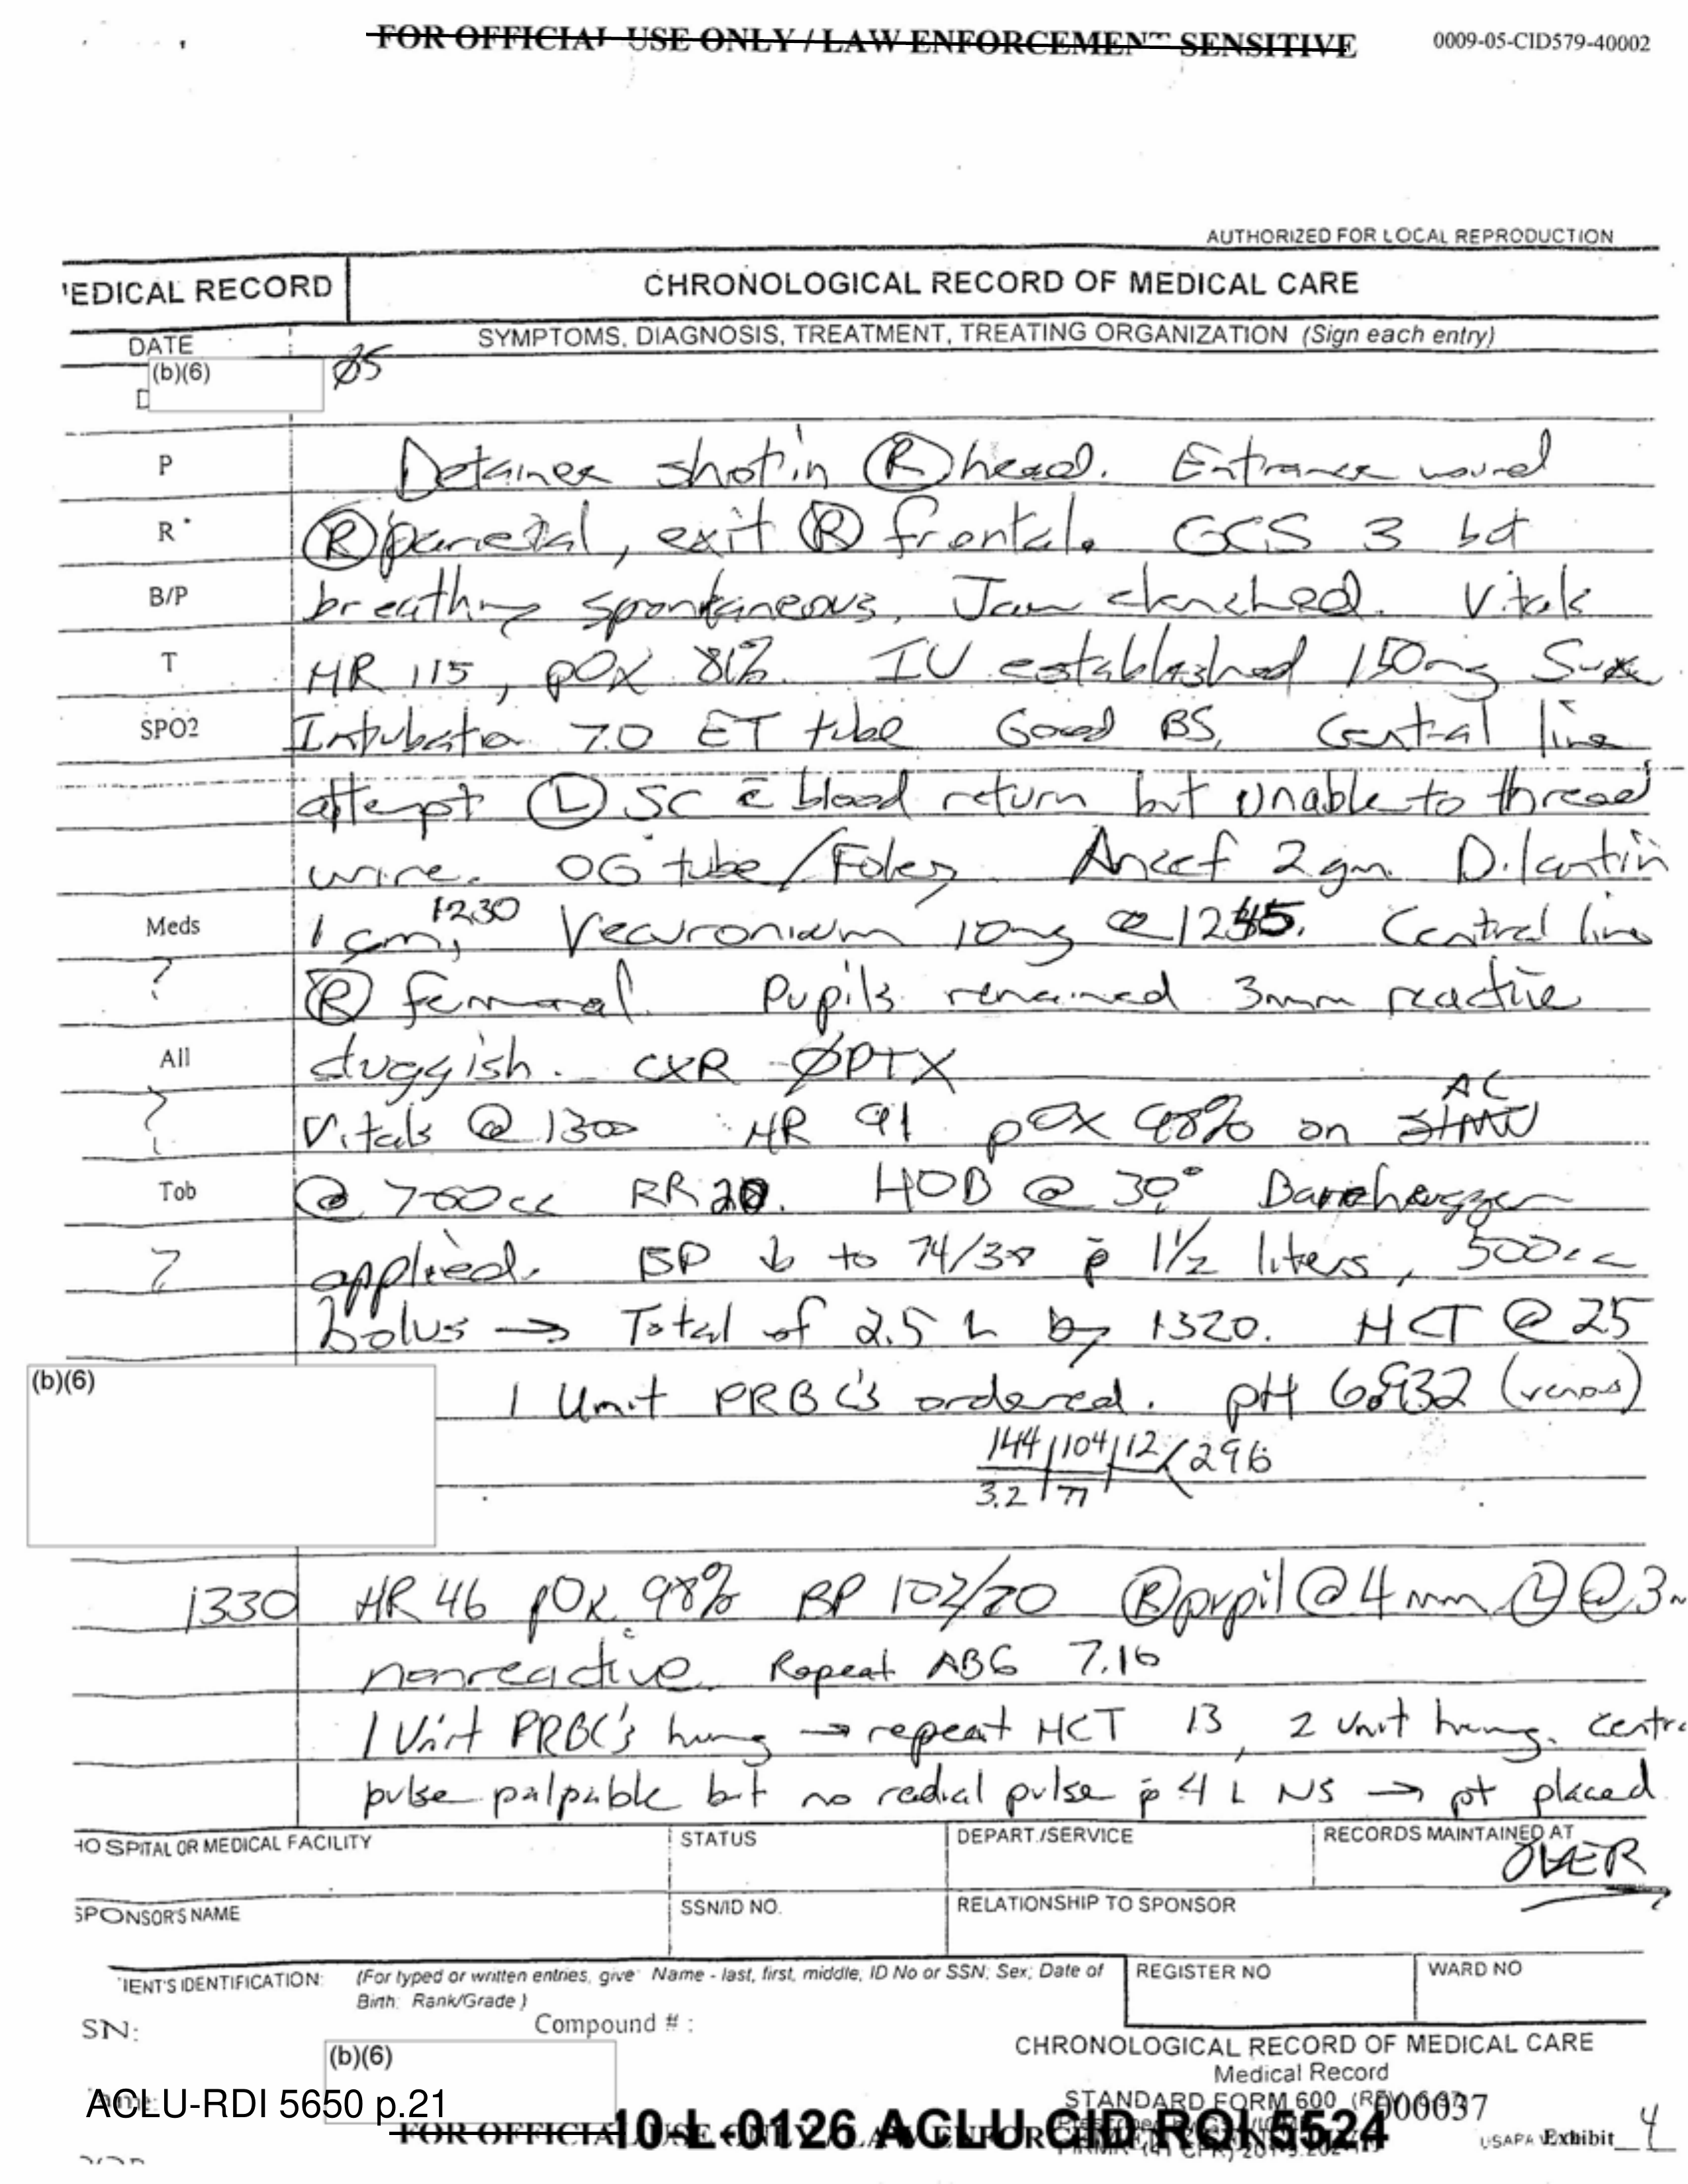 FOR OFFICIAL USE ONLY / LAW ENFORCEMENT SENSITIVE
0009-05-CID579-40002
AUTHORIZED FOR LOCAL REPRODUCTION
'EDICAL RECORD
CHRONOLOGICAL RECORD OF MEDICAL CARE
DATE
SYMPTOMS, DIAGNOSIS, TREATMENT, TREATING ORGANIZATION (Sign each entry)
(b)(6) Ø5
D
P Detainee shot in Ⓡ head. Entrance wound
R Ⓡ parietal, exit Ⓡ frontal. GCS 3 but
B/P breathing spontaneous, Jaw clenched. Vitals
T HR 115, pOX 81%. IV established 150mg Sux
SPO2 Intubation 7.0 ET tube Good BS, Central line
attempt Ⓛ SC c̄ blood return but unable to thread
wire. OG tube/Foley Ancef 2gm. Dilantin
Meds 1 gm, 1230 Vecuronium 10mg @ 1245. Central line
? Ⓡ femoral. Pupils remained 3mm reactive
All sluggish. CXR - ØPTX
? Vitals @ 1300 HR 91 pOX 98% on AC
Tob @ 700cc RR 20. HOB @ 30° Bairhugger
? applied. BP ↓ to 74/38 p̄ 1½ liters, 500cc
bolus → Total of 2.5 L by 1320. HCT @ 25
(b)(6) 1 Unit PRBC's ordered. pH 6.932 (venous)
144 | 104 | 12 < 296
3.2 | 77
1330 HR 46 pOX 98% BP 102/70 Ⓡ pupil @ 4mm Ⓛ @ 3m
nonreactive. Repeat ABG 7.16
1 Unit PRBC's hung → repeat HCT 13, 2 unit hung. Centra
pulse palpable but no radial pulse p̄ 4 L NS → pt placed
HOSPITAL OR MEDICAL FACILITY
STATUS
DEPART./SERVICE
RECORDS MAINTAINED AT
OVER
SPONSOR'S NAME
SSN/ID NO.
RELATIONSHIP TO SPONSOR
'IENT'S IDENTIFICATION: (For typed or written entries, give: Name - last, first, middle, ID No or SSN; Sex; Date of
Birth; Rank/Grade)
REGISTER NO
WARD NO
SN:
Compound # :
(b)(6)
CHRONOLOGICAL RECORD OF MEDICAL CARE
Medical Record
STANDARD FORM 600
000037
ACLU-RDI 5650 p.21
10-L-0126 ACLU CID ROI 5524
Exhibit 4